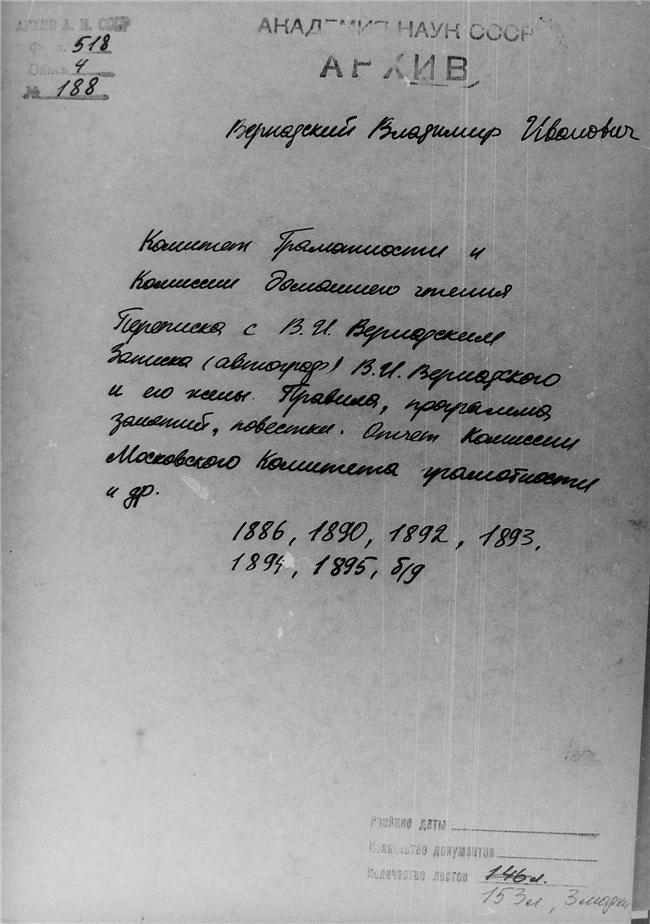 АРХИВ А. Н. СССР
Фонд 518
Опись 4
№ 188
АКАДЕМИЯ НАУК СССР
АРХИВ
Вернадский Владимир Иванович
Комитет Грамотности и
Комиссии домашнего чтения
Переписка с В.И. Вернадским
Записка (автограф) В.И. Вернадского
и его жены. Правила, программа
занятий, повестки. Отчет Комиссии
Московского Комитета грамотности
и др.
1886, 1890, 1892, 1893,
1894, 1895, б/д
Крайние даты
Количество документов
Количество листов 146л.
153л, 3